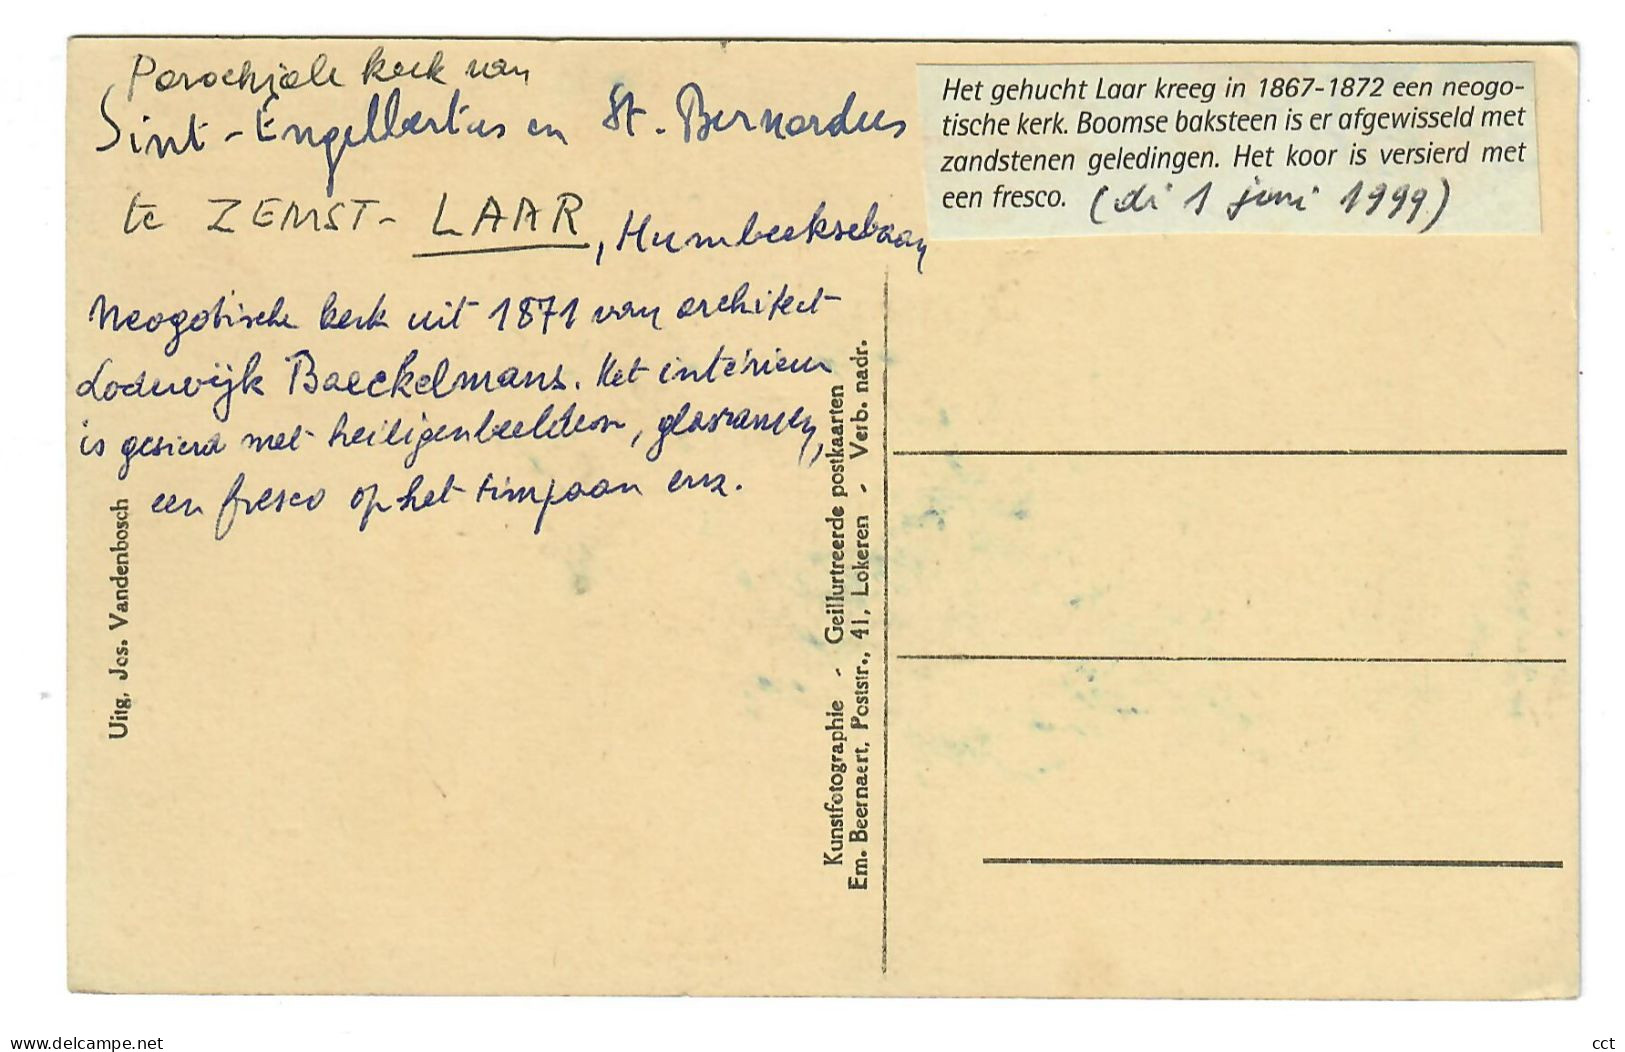 Parochiale kerk van
Sint-Engelbertus en St. Bernardus
te ZEMST-LAAR, Humbeeksebaan
Neogotische kerk uit 1871 van architect
Lodewijk Baeckelmans. Het intérieur
is gesierd met heiligenbeelden, glasramen,
een fresco op het timpaan enz.
Het gehucht Laar kreeg in 1867-1872 een neogo-
tische kerk. Boomse baksteen is er afgewisseld met
zandstenen geledingen. Het koor is versierd met
een fresco. (di 1 juni 1999)
Uitg. Jos. Vandenbosch
Kunstfotographie - Geillurtreerde postkaarten
Em. Beernaert, Poststr., 41, Lokeren - Verb. nadr.
www.delcampe.net
cct